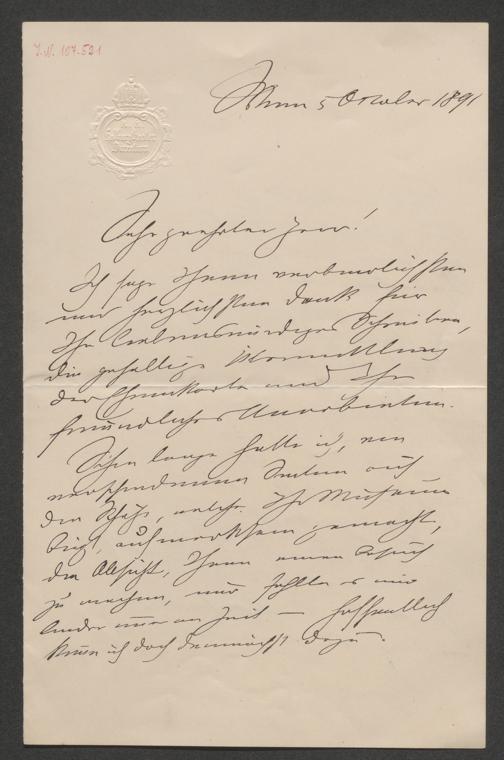 I.N. 107.521
Wien 5 October 1891
Sehr geehrter Herr!
Ich sage Ihnen verbindlichsten
und herzlichsten Dank für
Ihr liebenswürdiges Schreiben,
die gefällige Übermittlung
der Ehrenkarte und Ihr
freundliches Anerbieten.
Schon lange hatte ich, von
verschiedenen Seiten auf
die Schätze, welche Ihr Museum
birgt, aufmerksam gemacht,
die Absicht, Ihnen einen Besuch
zu machen, nur fehlte es mir
leider immer an Zeit — hoffentlich
komme ich doch demnächst dazu.